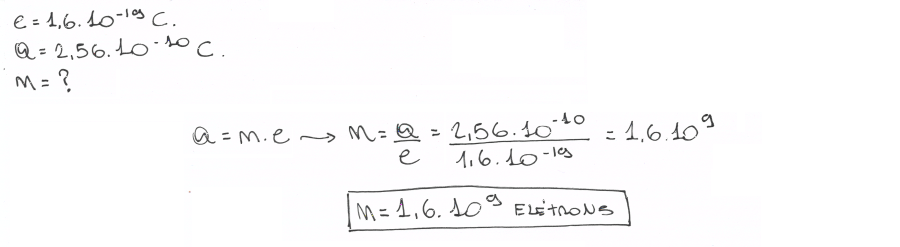 e = 1,6.10⁻¹⁹ C.
Q = 2,56.10⁻¹⁰ C.
n = ?
Q = n.e → n = Q/e = 2,56.10⁻¹⁰/1,6.10⁻¹⁹ = 1,6.10⁹
n = 1,6.10⁹ ELÉTRONS